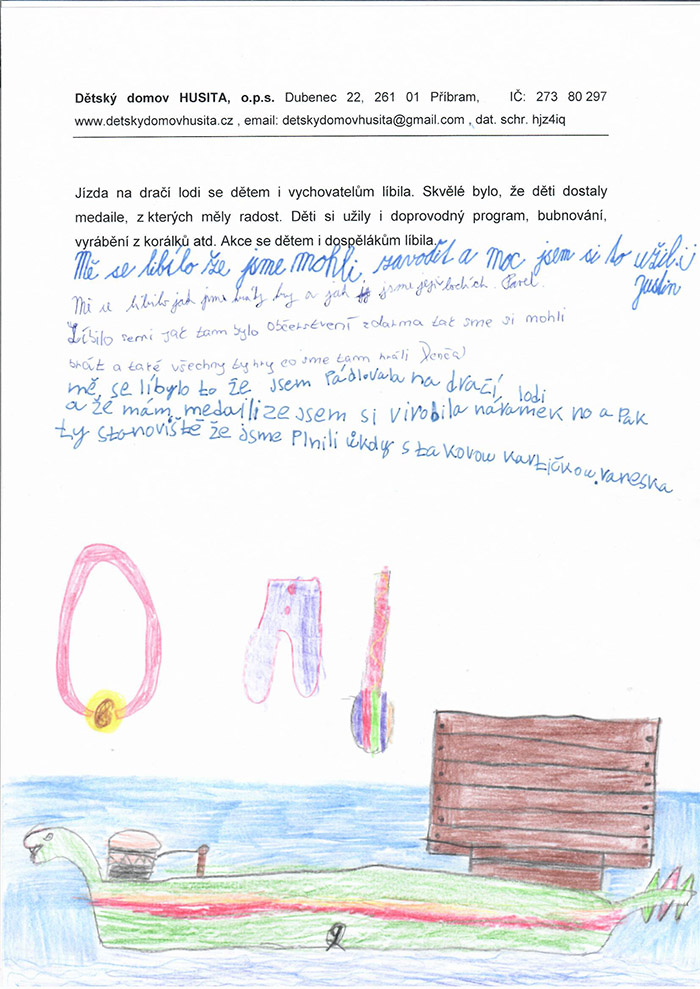 Dětský domov HUSITA, o.p.s. Dubenec 22, 261 01 Příbram, IČ: 273 80 297
www.detskydomovhusita.cz , email: detskydomovhusita@gmail.com , dat. schr. hjz4iq
Jízda na dračí lodi se dětem i vychovatelům líbila. Skvělé bylo, že děti dostaly
medaile, z kterých měly radost. Děti si užily i doprovodný program, bubnování,
vyrábění z korálků atd. Akce se dětem i dospělákům líbila.
Mě se libílo že jsme mohli zavodět a moc jsem si to užil :)
Justin
Mě se líbilo jak jsme hrály hry a jak jsme jeli lodích. Pavel.
Líbilo semi jak tam bylo občerstvení zdarma tak sme si mohli
brát a také všechny ty hry co sme tam hráli Denča)
mě, se líbylo to že jsem Pádlovala na dračí lodi
a že mám medaili ze jsem si virobila náramek no a Pak
ty stanoviště že jsme Plnili úkdy s takovou kartičkou. vaneska